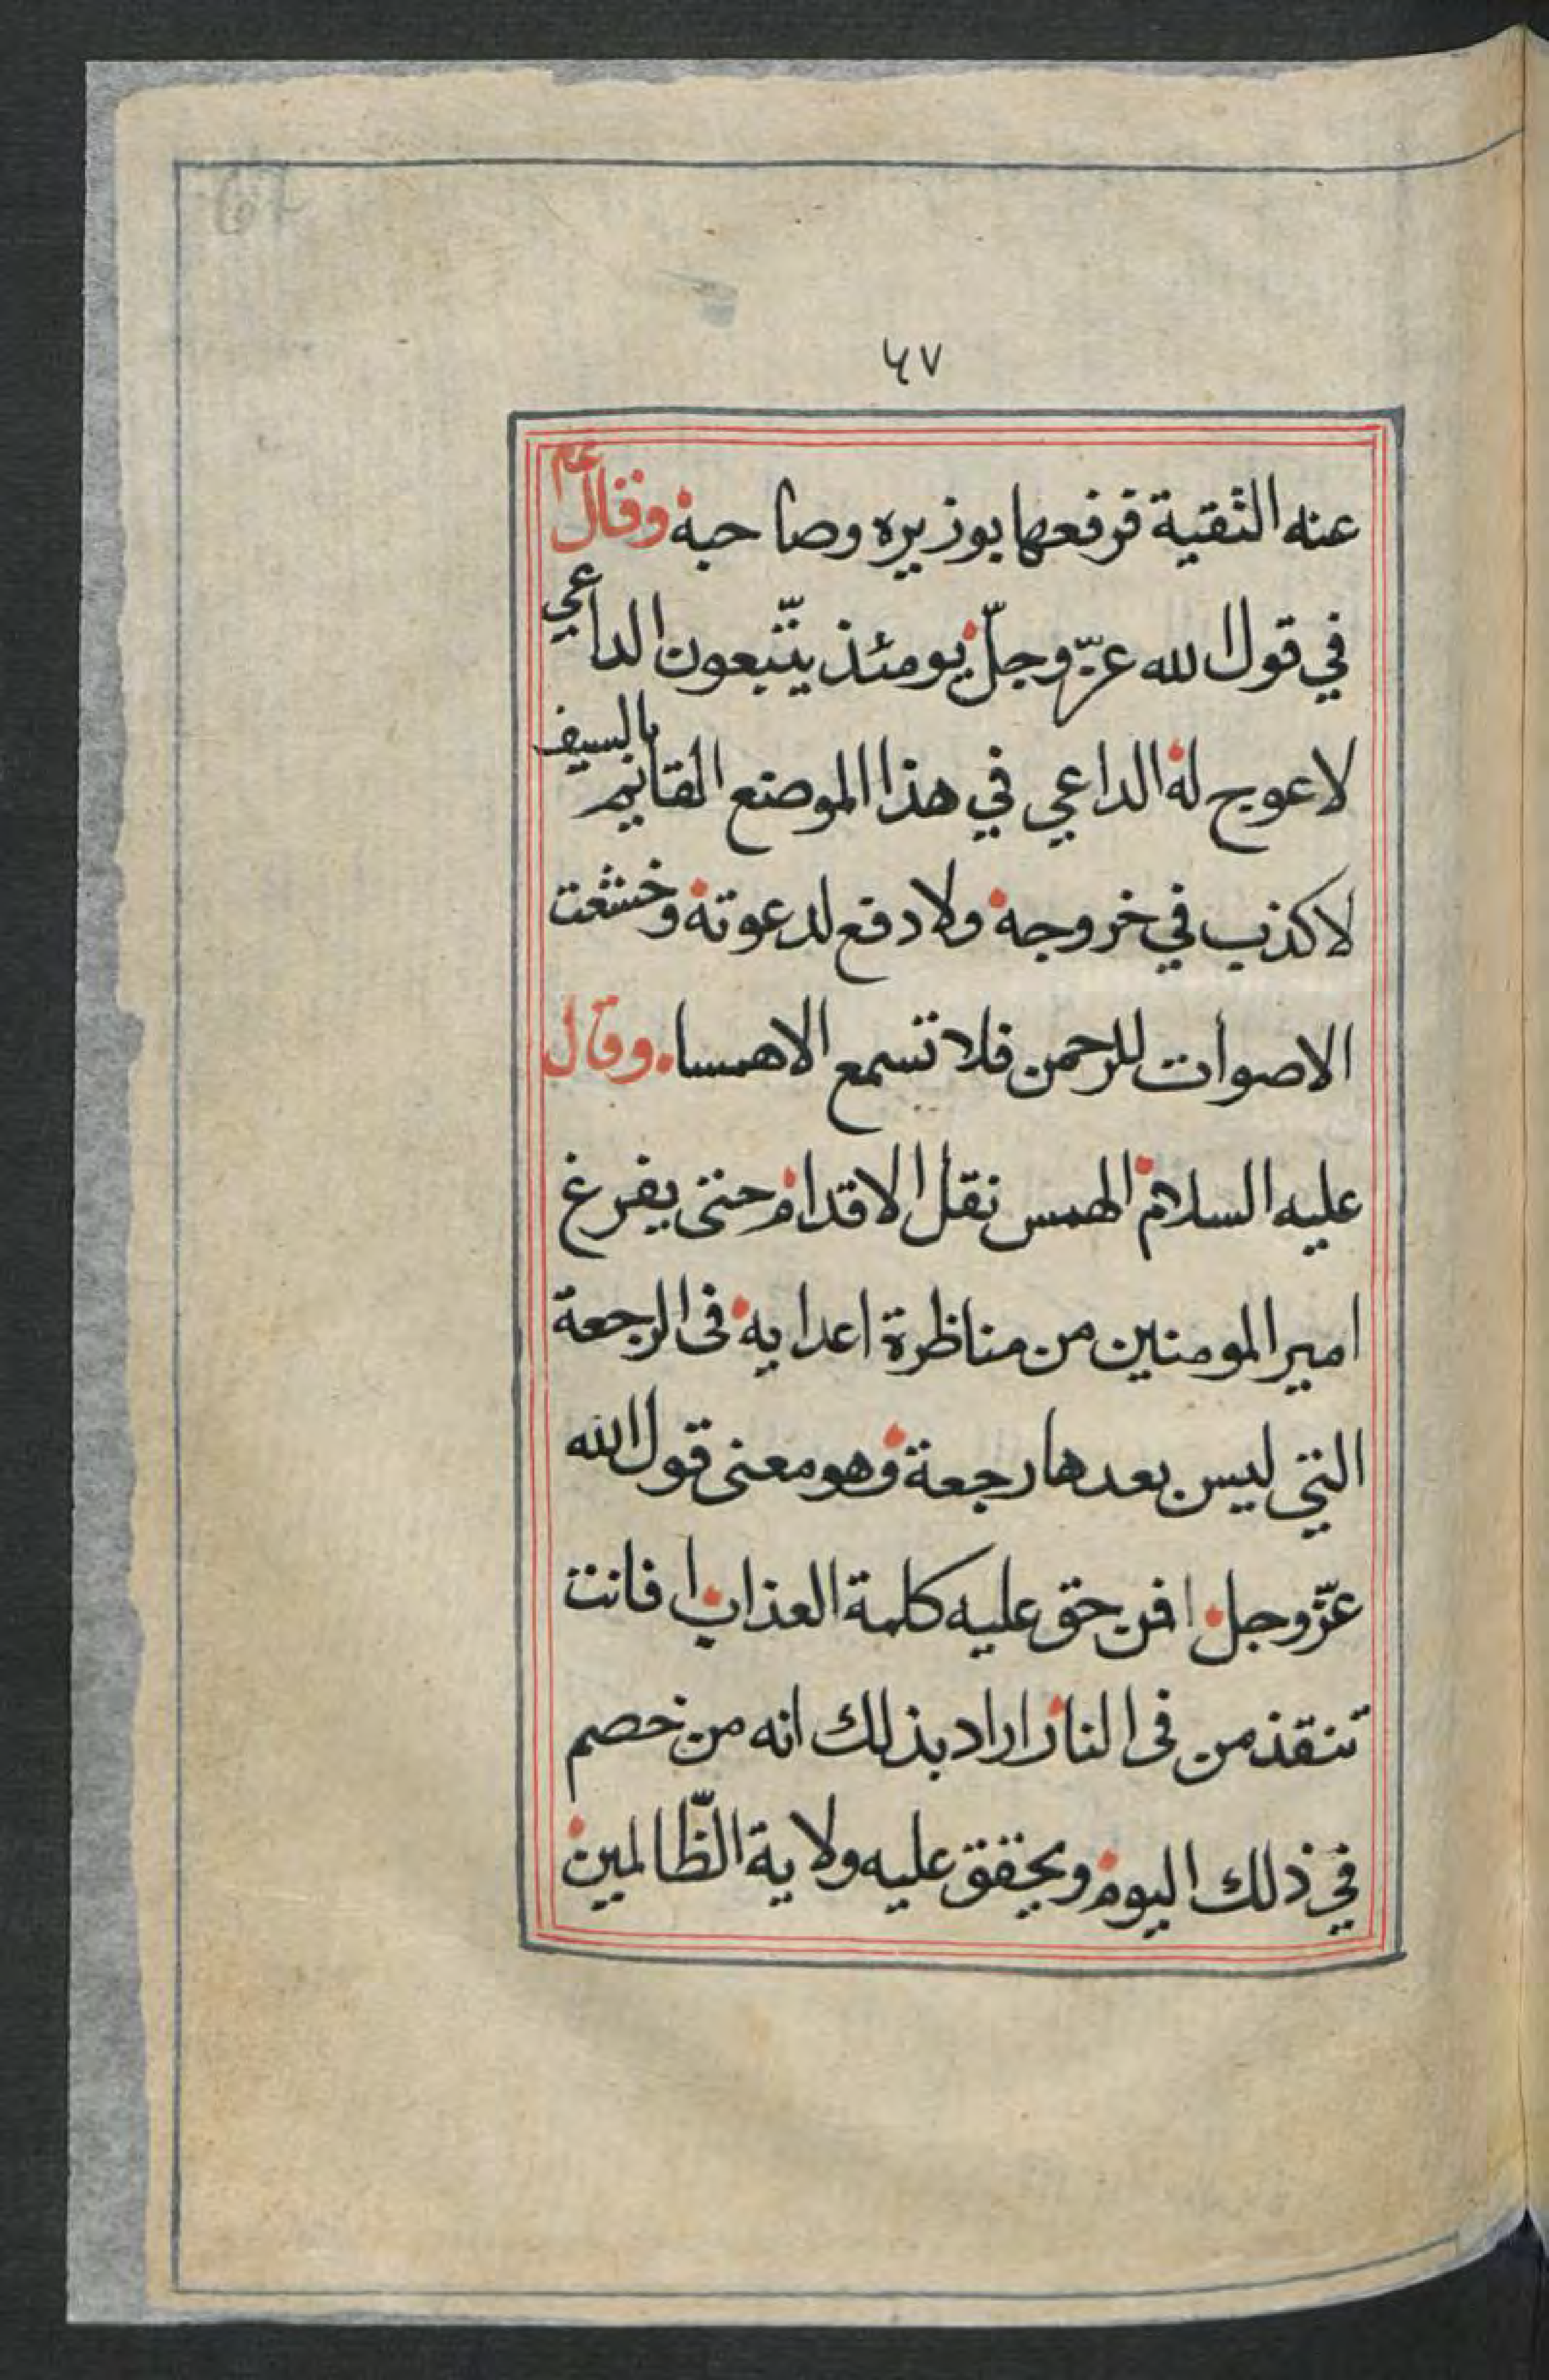 ٦٧
عنه التقية فرفعها بوزيره وصاحبه وقال عم
في قول الله عزّ وجلّ يومئذ يتّبعون الداعي
لا عوج له الداعي في هذا الموضع القايم بالسيف
لا كذب في خروجه ولا دفع لدعوته وخشعت
الاصوات للرحمن فلا تسمع الا همسا وقال
عليه السلام الهمس نقل الاقدام حتى يفرغ
امير المومنين من مناظرة اعدايه فى الرجعة
التي ليس بعدها رجعة وهو معنى قول الله
عزّ وجل افمن حق عليه كلمة العذاب افانت
تنقذ من فى النار اراد بذلك انه من خصم
في ذلك اليوم ويحقق عليه ولاية الظّالمين